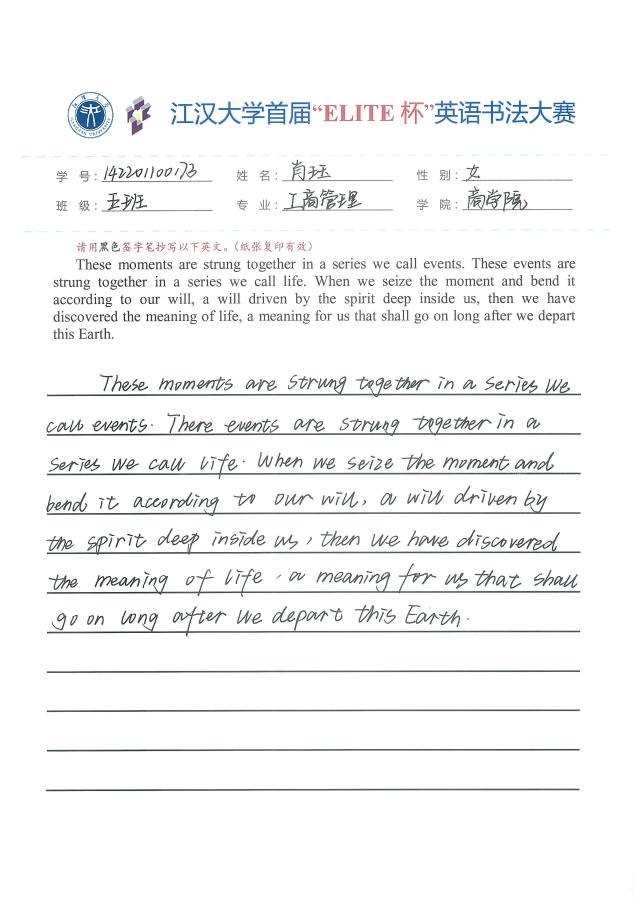 江汉大学首届“ELITE 杯”英语书法大赛
学 号：142201100173 姓 名：肖珏 性 别：女
班 级：五班 专 业：工商管理 学 院：商学院
请用黑色签字笔抄写以下英文。（纸张复印有效）
These moments are strung together in a series we call events. These events are
strung together in a series we call life. When we seize the moment and bend it
according to our will, a will driven by the spirit deep inside us, then we have
discovered the meaning of life, a meaning for us that shall go on long after we depart
this Earth.
These moments are strung together in a series we
call events. There events are strung together in a
series we call life. When we seize the moment and
bend it according to our will, a will driven by
the spirit deep inside us, then we have discovered
the meaning of life, a meaning for us that shall
go on long after we depart this Earth.